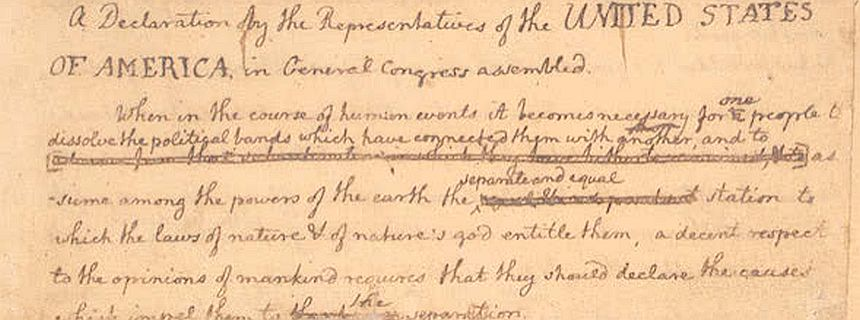 A Declaration by the Representatives of the UNITED STATES
OF AMERICA, in General Congress assembled.
When in the course of human events it becomes necessary for one people to
dissolve the political bands which have connected them with another, and to
as
-sume among the powers of the earth the separate and equal station to
which the laws of nature & of nature's god entitle them, a decent respect
to the opinions of mankind requires that they should declare the causes
which impel them to the separation.